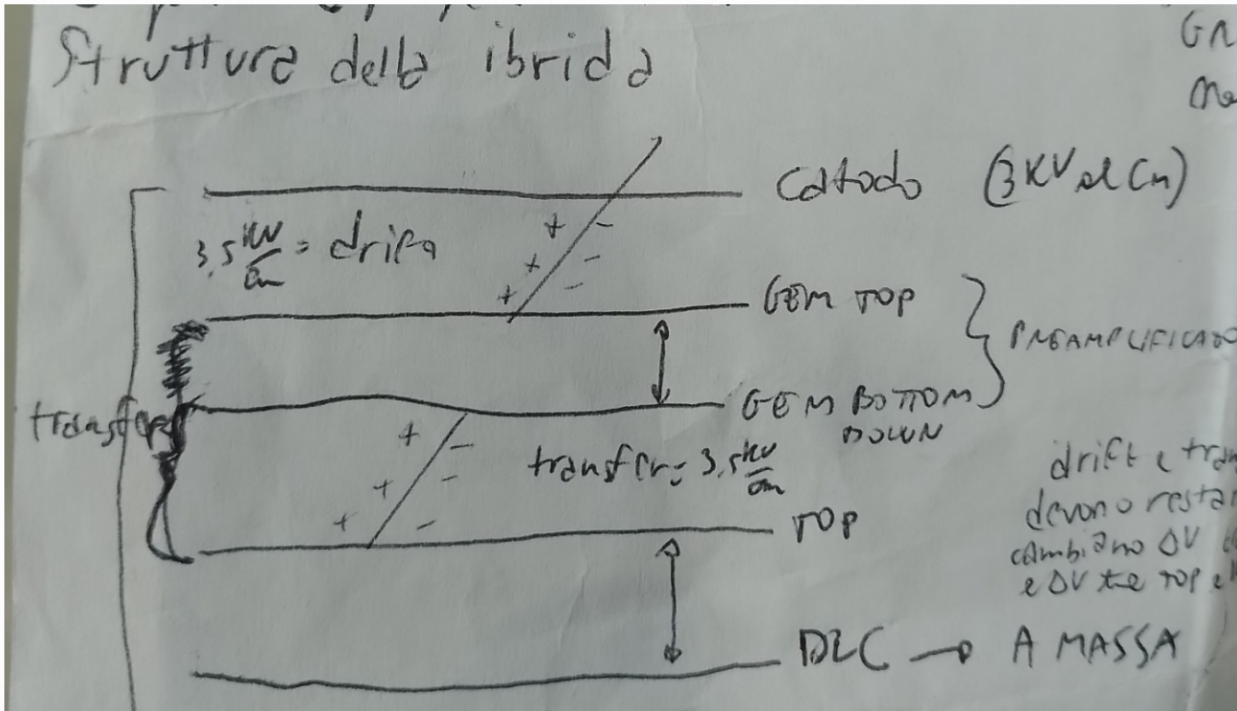 Struttura della ibrida
GR
Me
Catodo (3 KV al Cm)
3,5 KV/cm = drift
GEM TOP
PREAMPLIFICATO
GEM BOTTOM
DOWN
transfer
transfer = 3.5 KV/cm
drift e tran
devono resta
TOP
cambiano ΔV
e ΔV tra TOP e
DLC → A MASSA